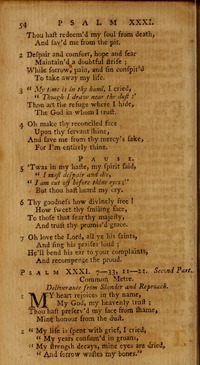 54 PSALM XXXI.
Thou hast redeem'd my soul from death,
And sav'd me from the pit.
2 Despair and comfort, hope and fear
Maintain'd a doubtful strife;
While sorrow, pain, and sin conspir'd
To take away my life.
3 "My time is in thy hand, I cried,
"Though I draw near the dust:"
Thou art the refuge where I hide,
The God in whom I trust.
4 Oh make thy reconciled face
Upon thy servant shine,
And save me from thy mercy's sake,
For I'm entirely thine.
PAUSE.
5 'Twas in my haste, my spirit said,
"I must despair and die,
"I am cut off before thine eyes;"
But thou hast heard my cry.
6 Thy goodness how divinely free!
How sweet thy smiling face,
To those that fear thy majesty,
And trust thy promis'd grace.
7 Oh love the Lord, all ye his saints,
And sing his praises loud;
He'll bend his ear to your complaints,
And recompense the proud.
PSALM XXXI. 7—13, 11—21. Second Part.
Common Metre.
Deliverance from Slander and Reproach.
1 MY heart rejoices in thy name,
My God, my heavenly trust;
Thou hast preserv'd my face from shame,
Mine honour from the dust.
2 "My life is spent with grief, I cried,
"My years consum'd in groans,
"My strength decays, mine eyes are dried,
"And sorrow wastes my bones."